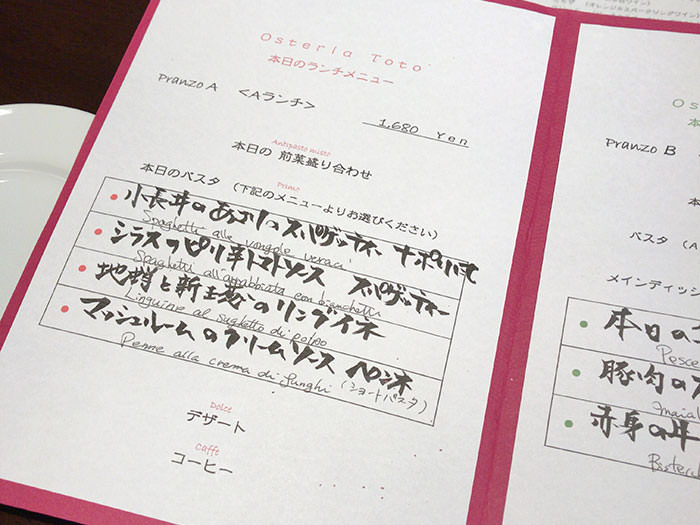 Osteria Toto
本日のランチメニュー
Pranzo A <Aランチ>
1,680 Yen
Antipasto misto
本日の 前菜盛り合わせ
Primo
本日のパスタ (下記のメニューよりお選びください)
小長井のあさりのスパゲッティー ナポリ風
Spaghetti alle vongole veraci
シラスのピリ辛トマトソース スパゲッティー
Spaghetti all'arrabbiata con bianchetti
地蛸と新玉ねぎのリングイネ
Linguine al sughetto di polpo
マッシュルームのクリームソース ペンネ
Penne alla crema di funghi (ショートパスタ)
Dolce
デザート
Caffe
コーヒー
(オレンジ&スパークリングワイン)
Os
本
Pranzo B
パスタ (A
メインディッシ
本日の
Pesce
豚肉の
maial
赤身の牛
Bistecc